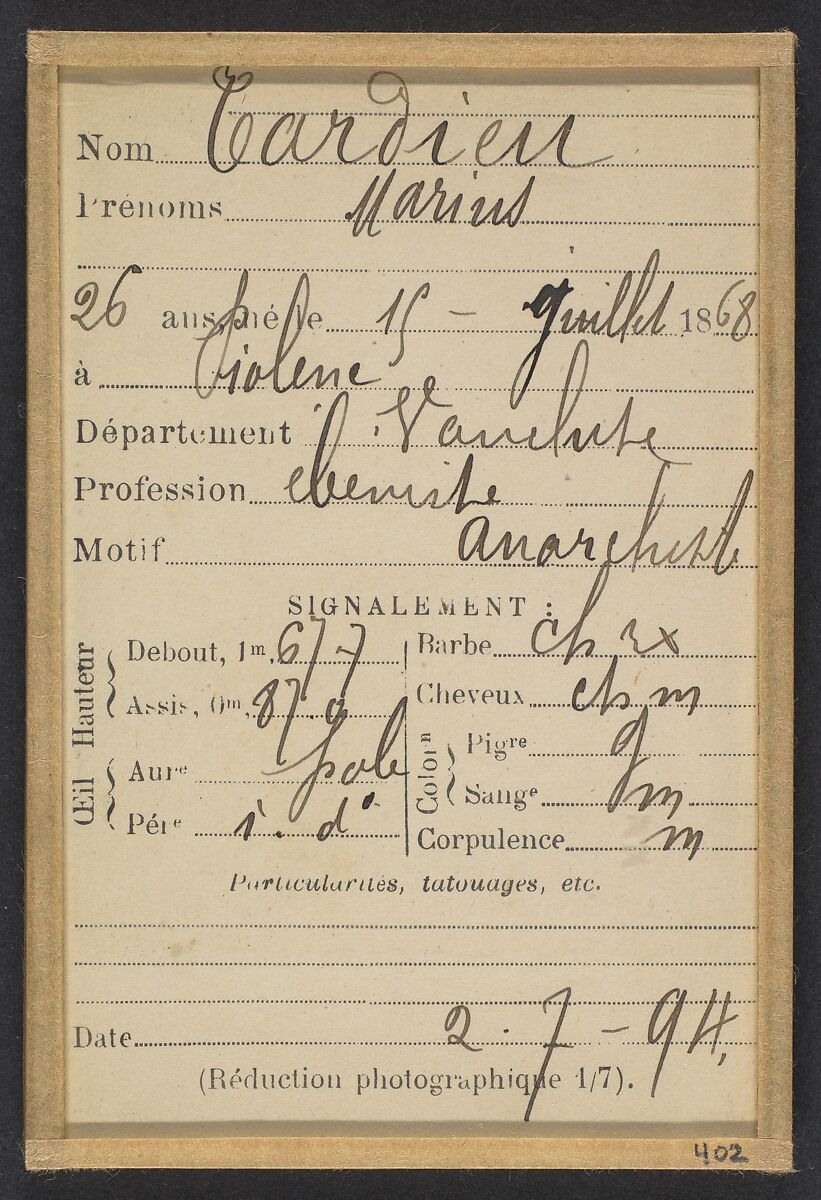 Nom Tardieu
Prénoms Marius
26 ans, né le 15 - Juillet 1868
à Piolenc
Département Vaucluse
Profession ébeniste
Motif anarchiste
SIGNALEMENT :
Hauteur
Debout, 1m, 67 7
Assis, 0m, 87.
Œil
Aure
Pére i. d
Barbe ch rx
Cheveux ch m
Colorn
Pigre g
Sange m
Corpulence m
Particularités, tatouages, etc.
Date 2 . 7 - 94,
(Réduction photographique 1/7).
402